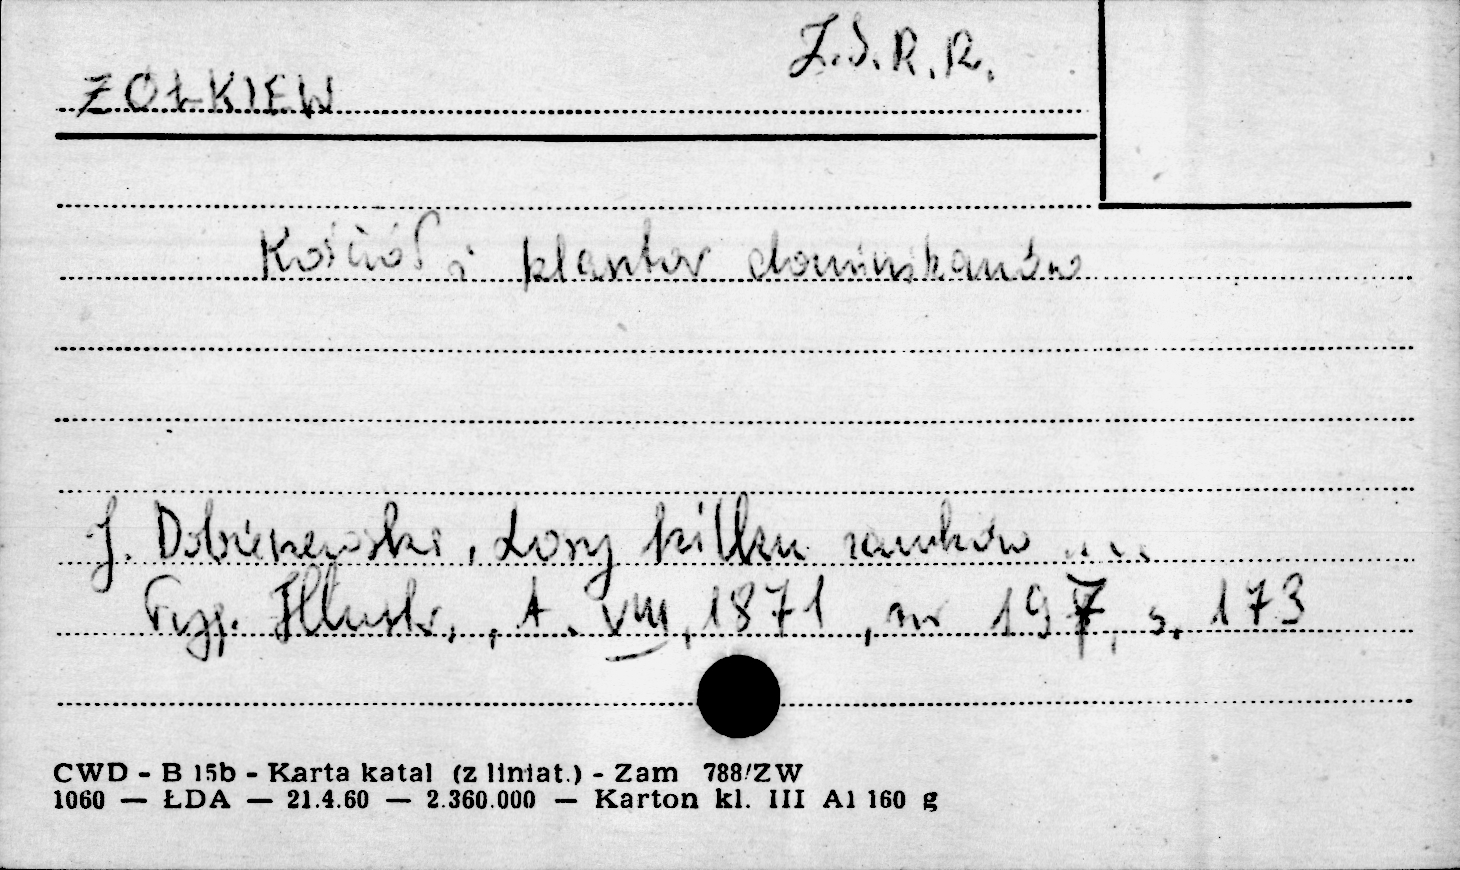 Z.S.R.R.
ŻÓŁKIEW
Kościół i klasztor dominikanów
J. Dobiszewski, Losy kilku zamków ...
Tyg. Illustr., t. VIII, 1871, nr 197, s. 173
CWD - B 15b - Karta katal (z liniat.) - Zam 788/ZW
1060 — ŁDA — 21.4.60 — 2.360.000 — Karton kl. III A1 160 g